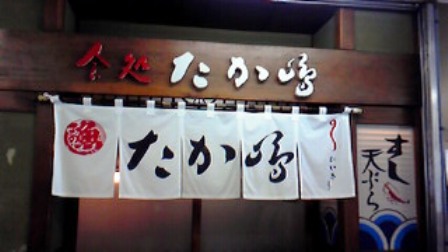 食処 たか嶋
たか嶋
すし
天ぷら